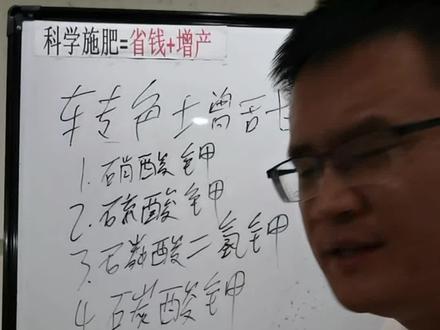 科学施肥=省钱+增产
转色增甜
1.硝酸钾
2.硫酸钾
3.磷酸二氢钾
4.碳酸钾